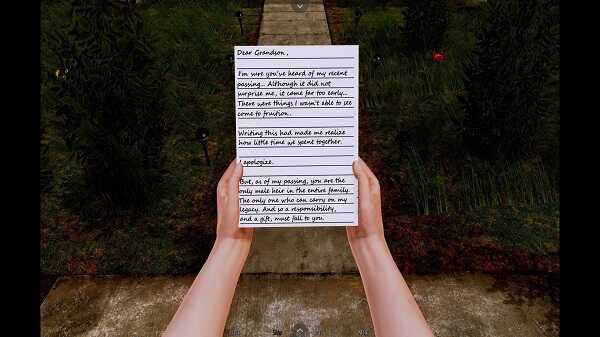 Dear Grandson,
I'm sure you've heard of my recent
passing... Although it did not
surprise me, it came far too early...
There were things I wasn't able to see
come to fruition.
Writing this had made me realize
how little time we spent together.
I apologize.
But, as of my passing, you are the
only male heir in the entire family.
The only one who can carry on my
legacy. And so a responsibility,
and a gift, must fall to you.